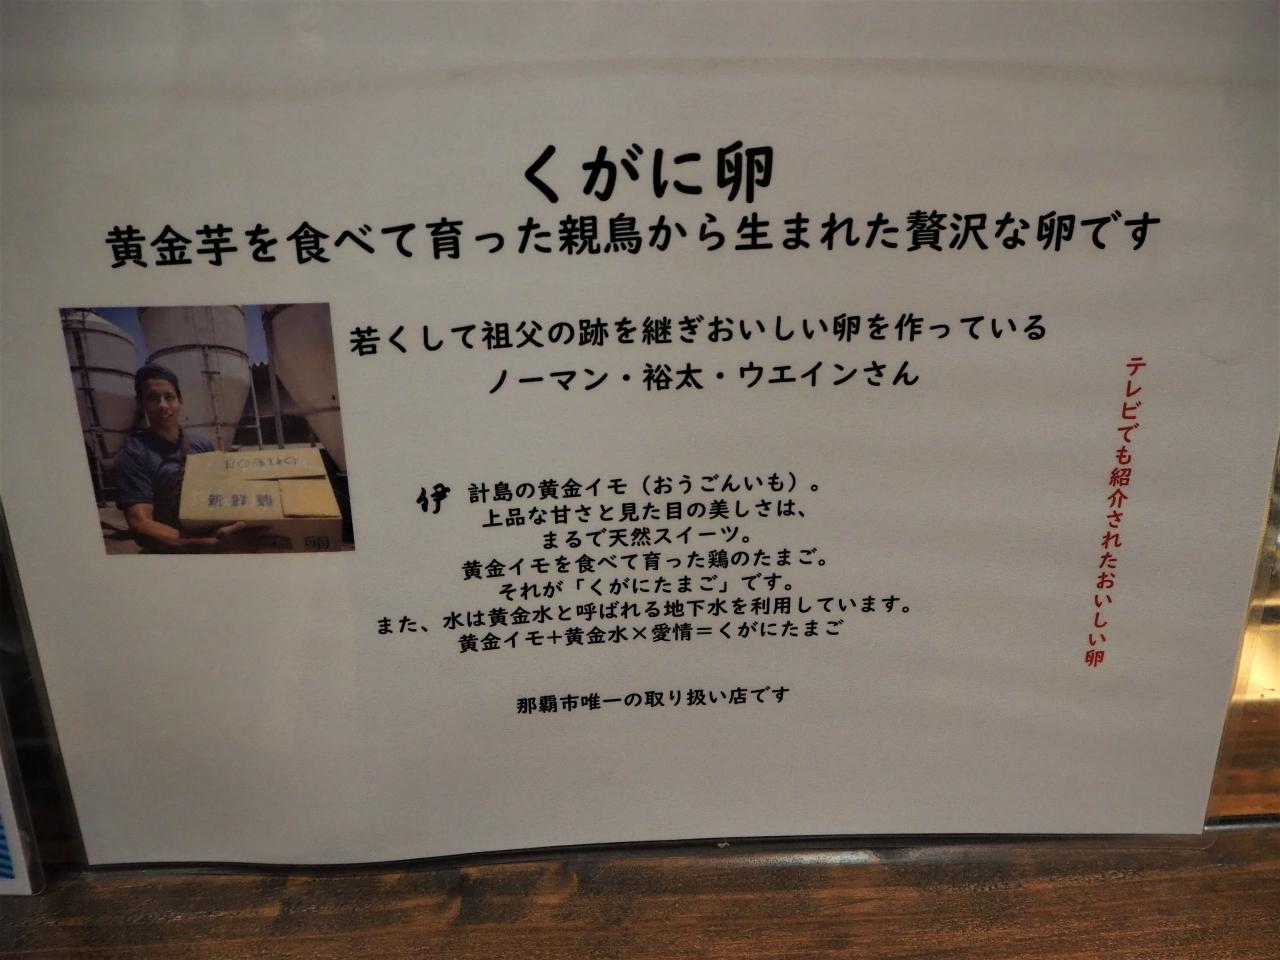 くがに卵
黄金芋を食べて育った親鳥から生まれた贅沢な卵です
若くして祖父の跡を継ぎおいしい卵を作っている
ノーマン・裕太・ウエインさん
テレビでも紹介されたおいしい卵
伊計島の黄金イモ（おうごんいも）。
上品な甘さと見た目の美しさは、
まるで天然スイーツ。
黄金イモを食べて育った鶏のたまご。
それが「くがにたまご」です。
また、水は黄金水と呼ばれる地下水を利用しています。
黄金イモ+黄金水×愛情＝くがにたまご
那覇市唯一の取り扱い店です